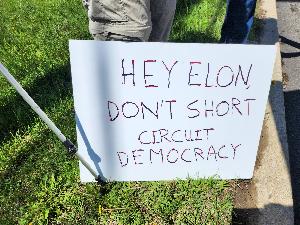 HEY ELON,
DON'T SHORT
CIRCUIT
DEMOCRACY